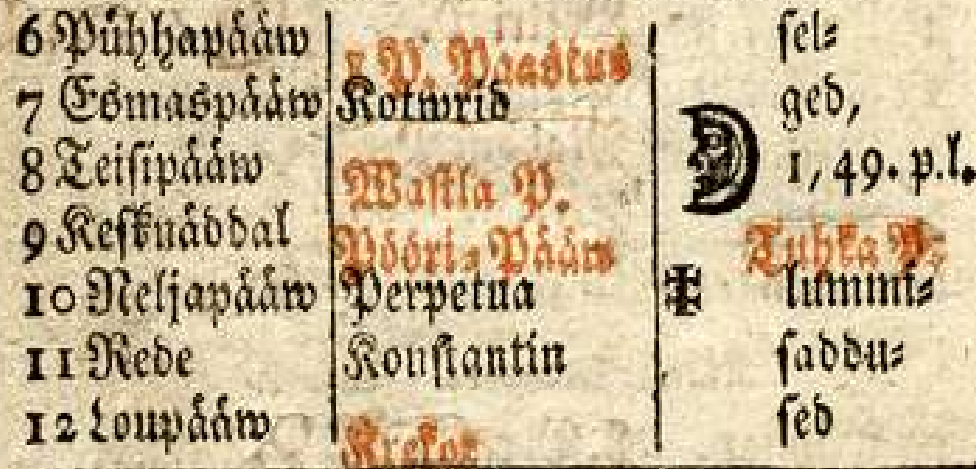 6 Pühhapääw 1 P. Paastus sel=
7 Esmaspääw Kotwrid ged,
8 Teisipääw Wastla P. 1, 49. p. l.
9 Kesknäddal Pööri=Pääw Tuhka P=
10 Neljapääw Perpetua lummi=
11 Rede Konstantin saddu=
12 Loupääw Krekor sed